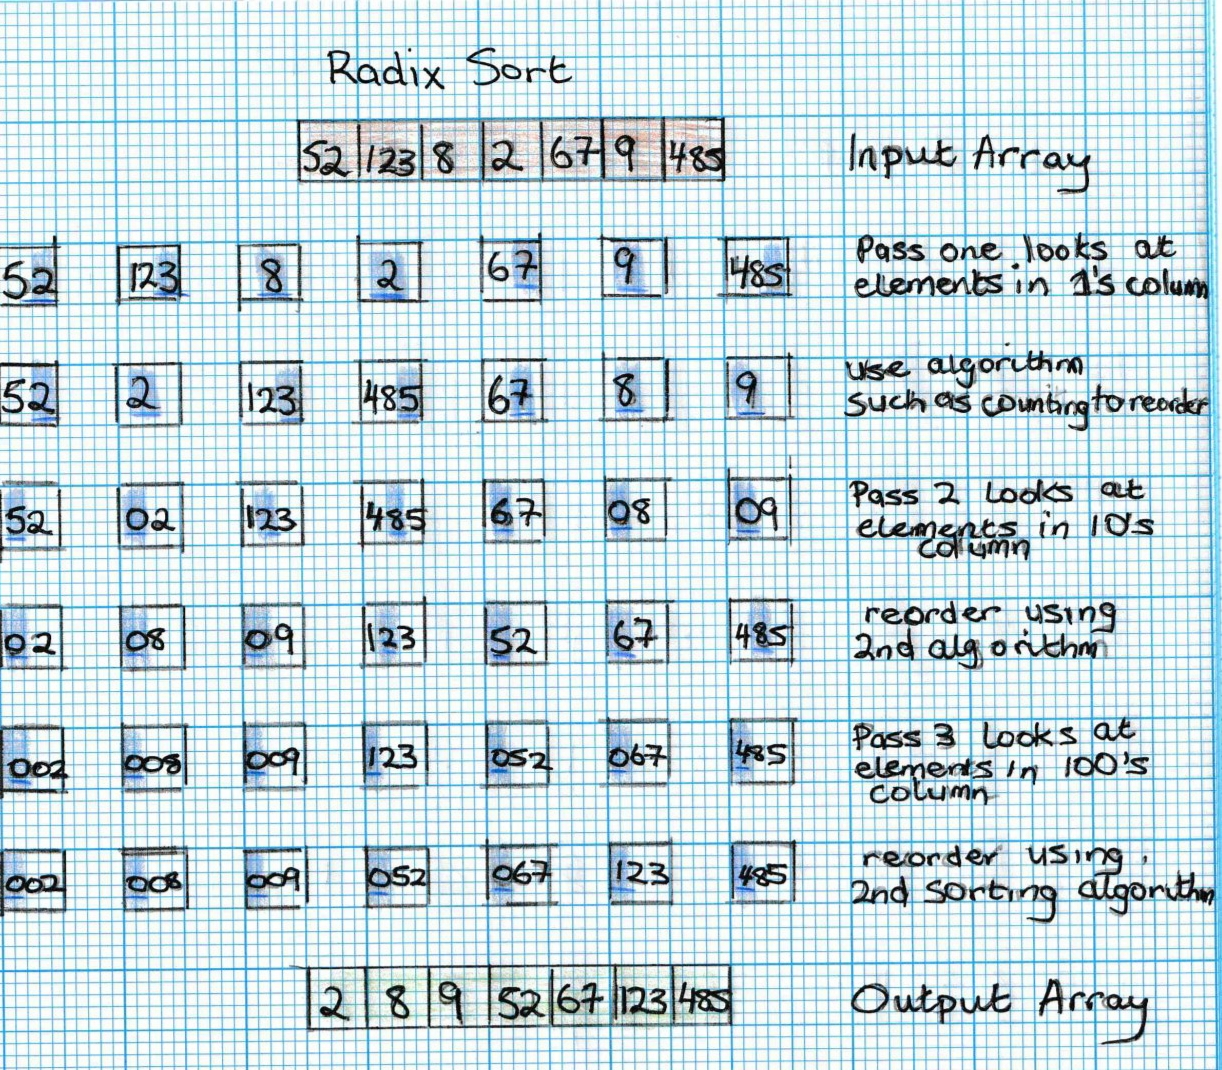 Radix Sort
52 123 8 2 67 9 485 Input Array
52 123 8 2 67 9 485 Pass one looks at
elements in 1's column
52 2 123 485 67 8 9 use algorithm
such as counting to reorder
52 02 123 485 67 08 09 Pass 2 Looks at
elements in 10's
column
02 08 09 123 52 67 485 reorder using
2nd algorithm
002 008 009 123 052 067 485 Pass 3 Looks at
elements in 100's
column
002 008 009 052 067 123 485 reorder using
2nd sorting algorithm
2 8 9 52 67 123 485 Output Array